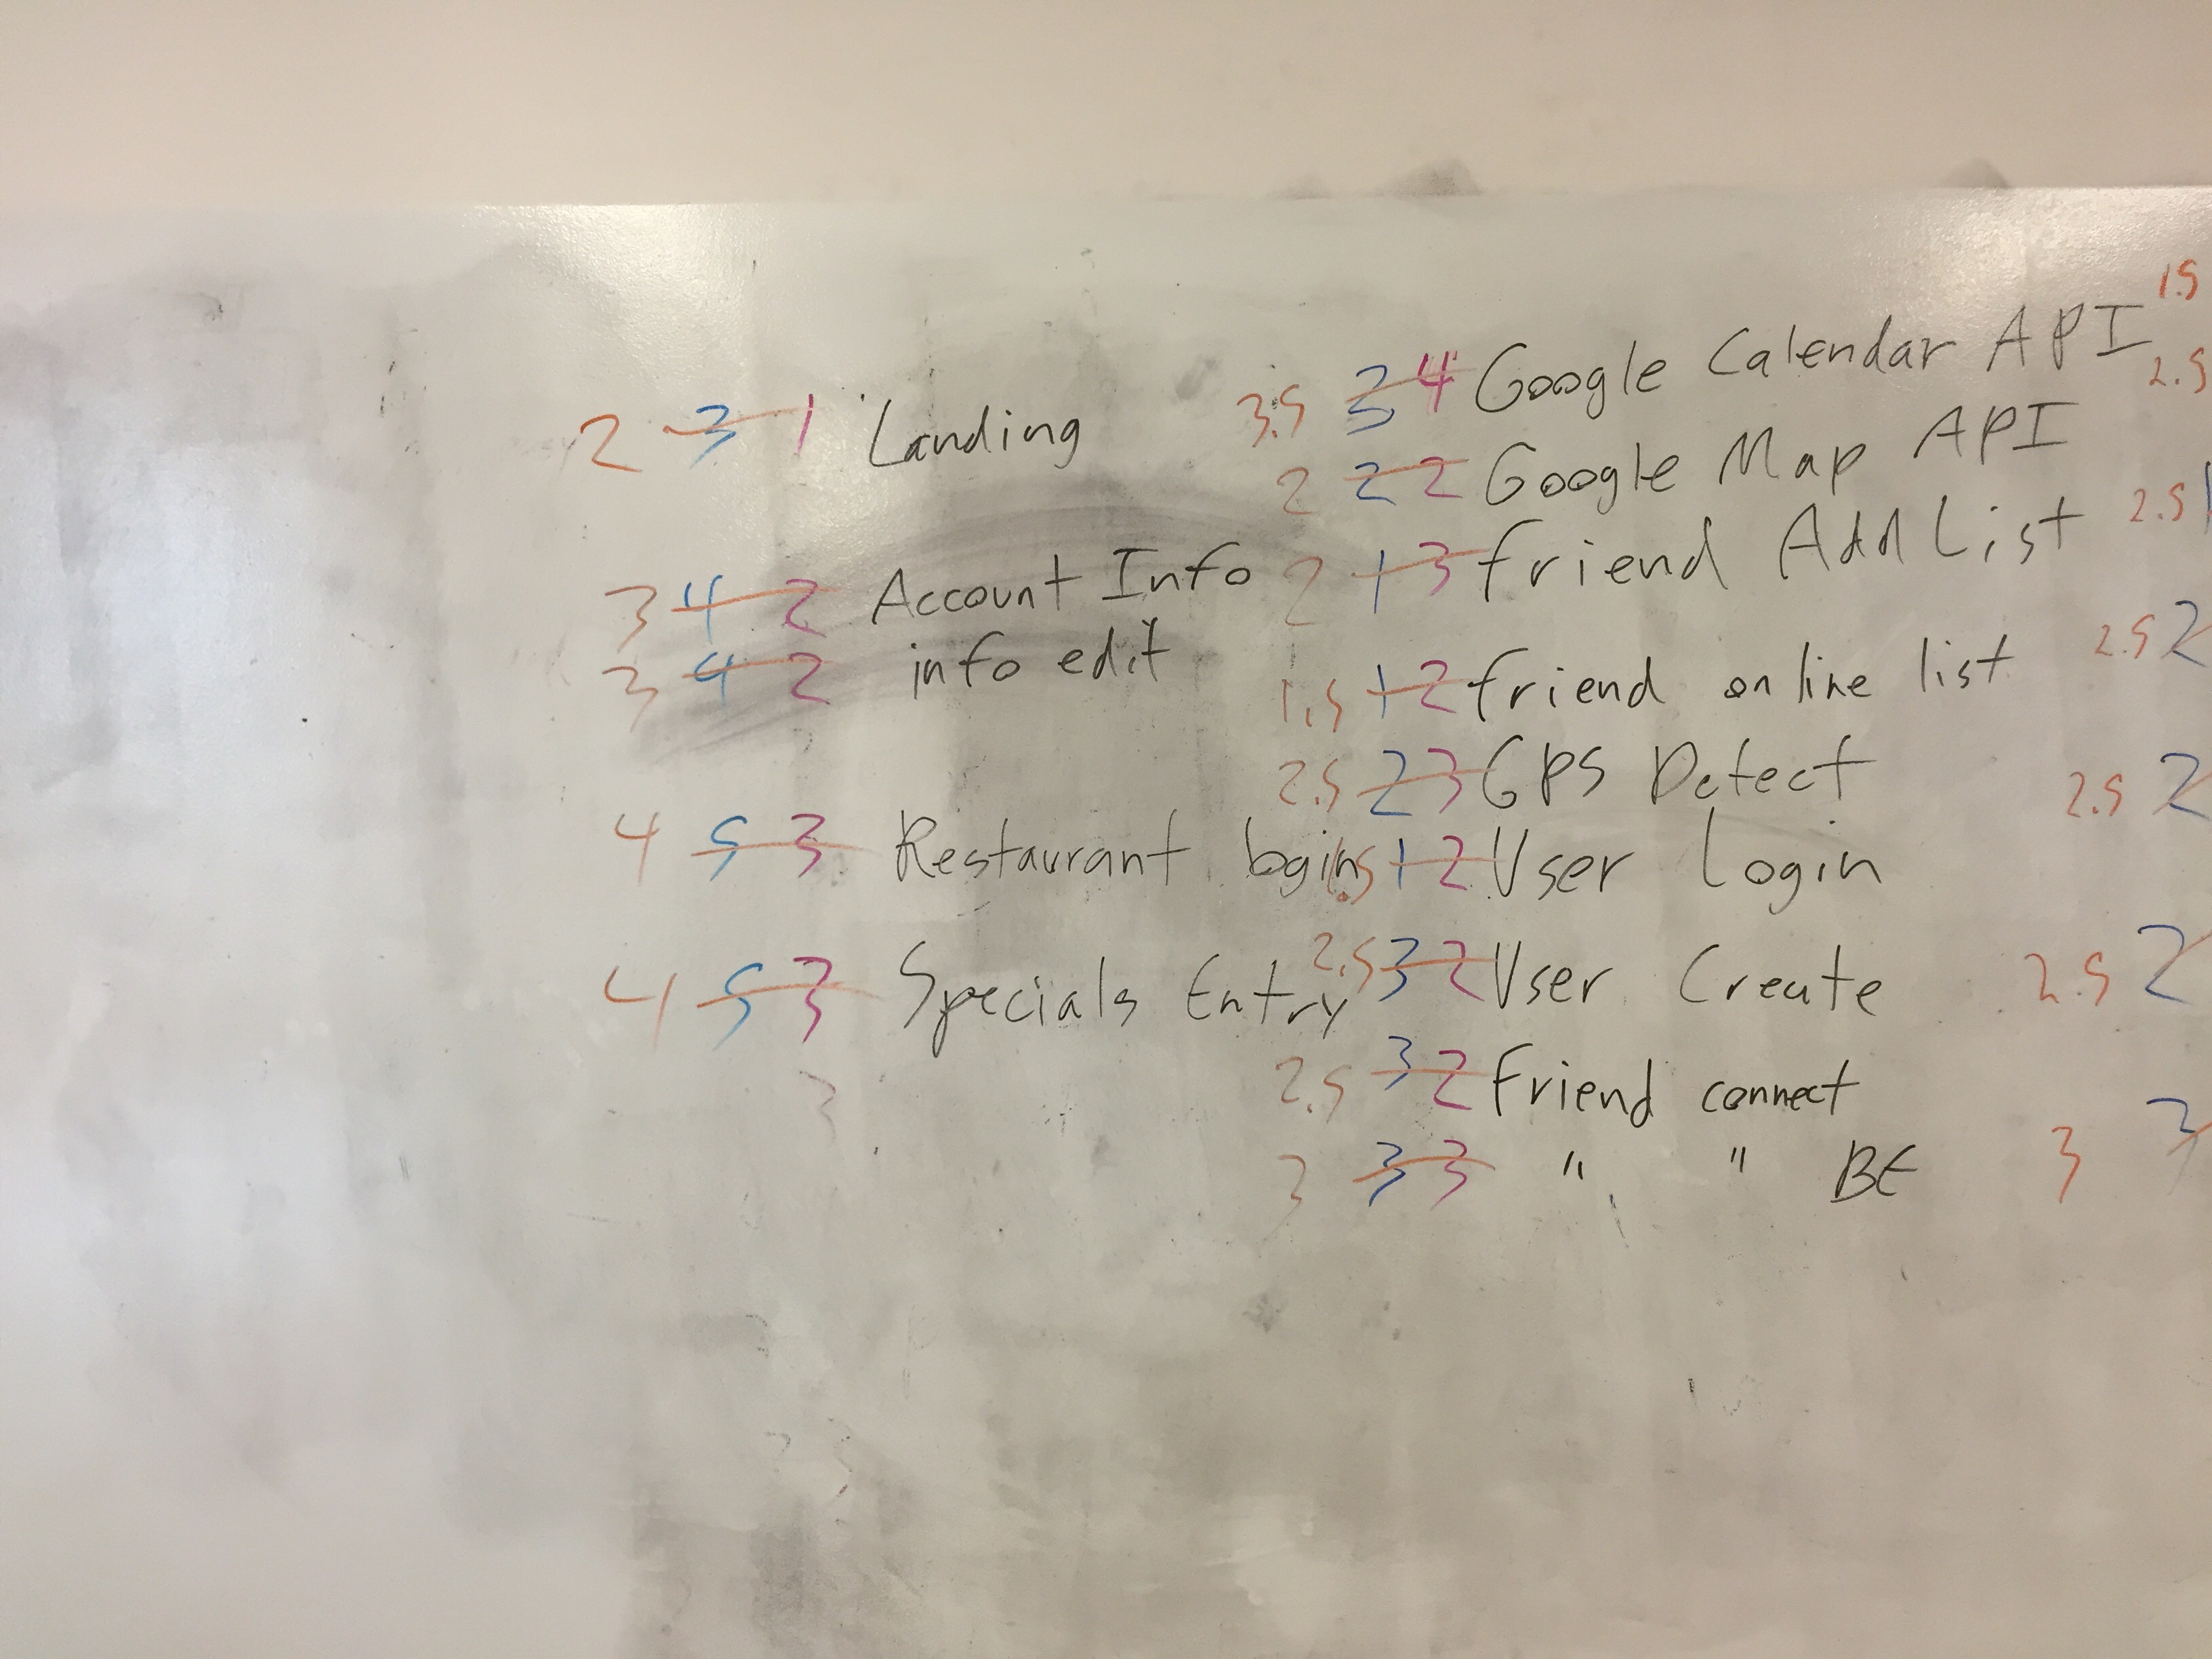 2 3 1 Landing
3 4 2 Account Info
3 4 2 info edit
4 5 3 Restaurant login
4 5 3 Specials Entry
3
3.5 3 4 Google Calendar API
2 2 2 Google Map API
2 1 3 friend Add List
1.5 1 2 friend online list
2.5 2 3 GPS Detect
1.5 1 2 User Login
2.5 3 2 User Create
2.5 3 2 Friend connect
3 3 3 " " BE
1.5
2.5
2.5 1
2.5 2
2.5 2
2.5 2
3 3